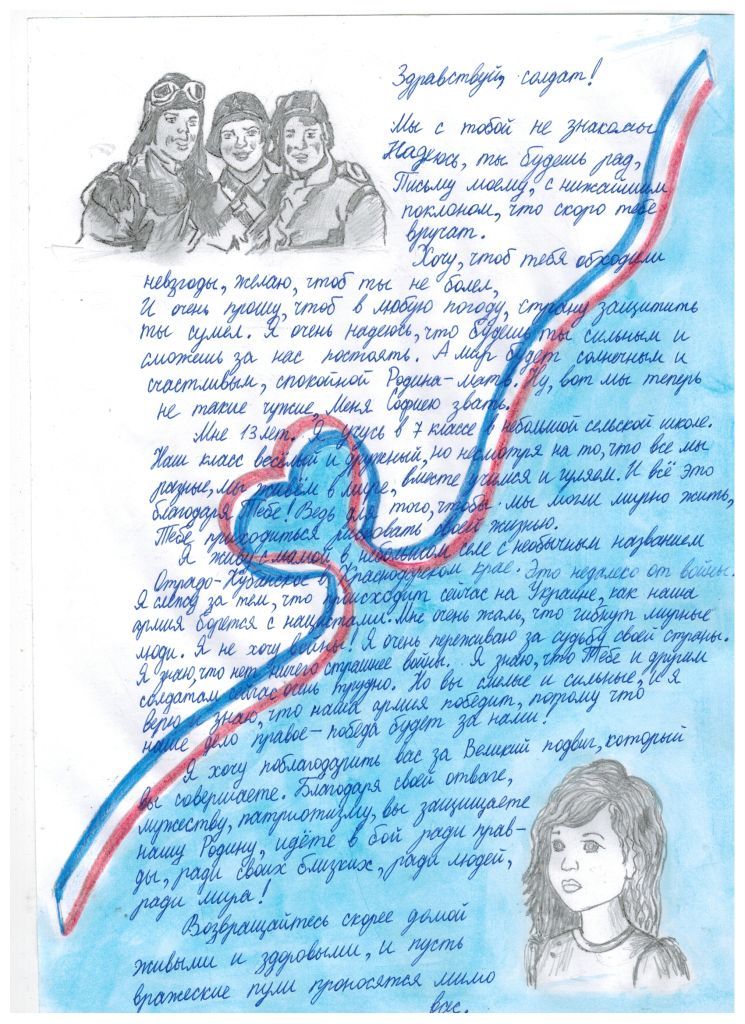 Здравствуй, солдат!
Мы с тобой не знакомы
Надеюсь, ты будешь рад,
Письму моему, с нижайшим
поклоном, что скоро тебе
вручат.
Хочу, чтоб тебя обходили
невзгоды, желаю, чтоб ты не болел,
И очень прошу, чтоб в любую погоду, страну защитить
ты сумел. Я очень надеюсь, что будешь ты сильным и
сможешь за нас постоять. А мир будет солнечным и
счастливым, спокойной Родина-мать. Ну, вот мы теперь
не такие чужие, Меня Софиею звать.
Мне 13 лет. Я учусь в 7 классе в небольшой сельской школе.
Наш класс весёлый и дружный, но несмотря на то, что все мы
разные, мы живём в мире, вместе учимся и гуляем. И всё это
благодаря Тебе! Ведь для того, чтобы мы могли мирно жить,
Тебе приходиться рисковать своей жизнью.
Я живу с мамой в небольшом селе с необычным названием
Отрадо-Кубанское в Краснодарском крае. Это недалеко от войны.
Я слежу за тем, что происходит сейчас на Украине, как наша
армия борется с нацистами. Мне очень жаль, что гибнут мирные
люди. Я не хочу войны! Я очень переживаю за судьбу своей страны.
Я знаю, что нет ничего страшнее войны. Я знаю, что Тебе и другим
солдатам сейчас очень трудно. Но вы смелые и сильные, и я
верю и знаю, что наша армия победит, потому что
наше дело правое - победа будет за нами!
Я хочу поблагодарить вас за Великий подвиг, который
вы совершаете. Благодаря своей отваге,
мужеству, патриотизму, вы защищаете
нашу Родину, идёте в бой ради прав-
ды, ради своих близких, ради людей,
ради мира!
Возвращайтесь скорее домой
живыми и здоровыми, и пусть
вражеские пули проносятся мимо
вас.